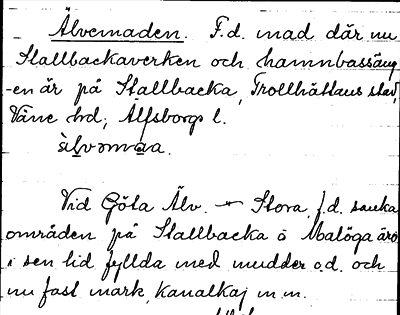 Älvemaden. F.d. mad där nu
Stallbackaverken och hamnbassäng
-en är på Stallbacka, Trollhättans stad,
Väne hd; Älfsborgs l.
Vid Göta Älv. Stora f.d. sanka
områden på Stallbacka o Malöga äro
i sen tid fyllda med mudder o.d. och
nu fast mark, kanalkaj m.m.